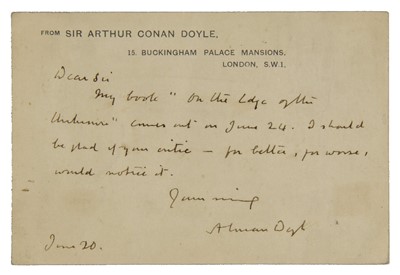 FROM SIR ARTHUR CONAN DOYLE,
15, BUCKINGHAM PALACE MANSIONS,
LONDON, S.W.1.
Dear Sir
My book "On the Edge of the
Unknown" comes out on June 24. I should
be glad if your critic — for better, for worse,
would notice it.
Yours
A Conan Doyle
June 20.